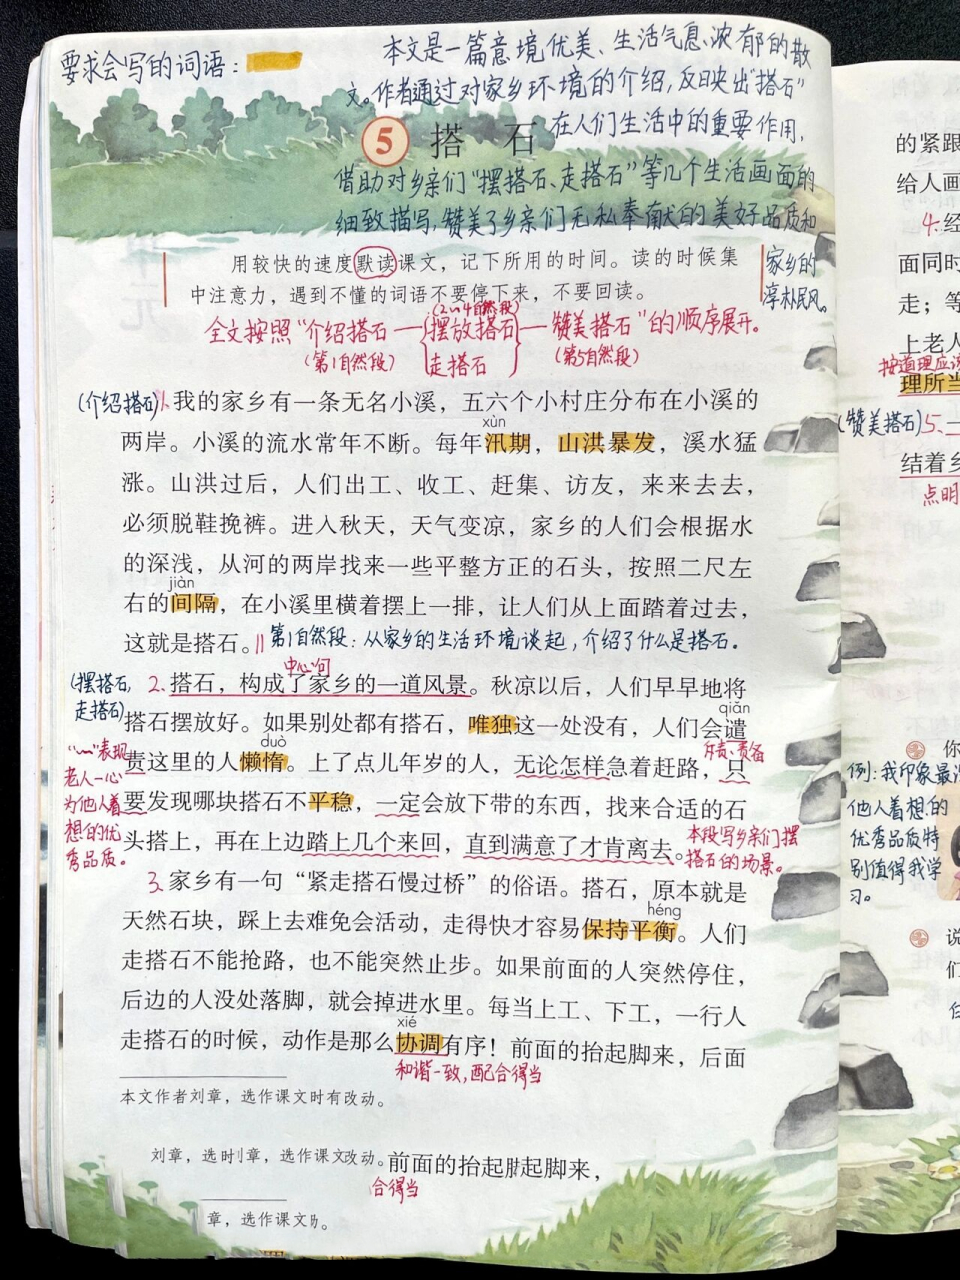 要求会写的词语：
本文是一篇意境优美、生活气息浓郁的散
文。作者通过对家乡环境的介绍，反映出“搭石”
在人们生活中的重要作用，
5 搭 石
借助对乡亲们“摆搭石、走搭石”等几个生活画面的
细致描写，赞美了乡亲们无私奉献的美好品质和
家乡的
淳朴民风。
用较快的速度默读课文，记下所用的时间。读的时候集
中注意力，遇到不懂的词语不要停下来，不要回读。
(2~4自然段)
全文按照“介绍搭石—{摆放搭石}—赞美搭石”的顺序展开。
(第1自然段) 走搭石 (第5自然段)
(介绍搭石)1.我的家乡有一条无名小溪，五六个小村庄分布在小溪的
xùn
两岸。小溪的流水常年不断。每年汛期，山洪暴发，溪水猛
涨。山洪过后，人们出工、收工、赶集、访友，来来去去，
必须脱鞋挽裤。进入秋天，天气变凉，家乡的人们会根据水
的深浅，从河的两岸找来一些平整方正的石头，按照二尺左
jiàn
右的间隔，在小溪里横着摆上一排，让人们从上面踏着过去，
这就是搭石。‖第1自然段：从家乡的生活环境谈起，介绍了什么是搭石。
中心句
(摆搭石,
走搭石)
2.搭石，构成了家乡的一道风景。秋凉以后，人们早早地将
qiǎn
搭石摆放好。如果别处都有搭石，唯独这一处没有，人们会谴
duò
斥责、责备
责这里的人懒惰。上了点儿年岁的人，无论怎样急着赶路，只
要发现哪块搭石不平稳，一定会放下带的东西，找来合适的石
头搭上，再在上边踏上几个来回，直到满意了才肯离去。
“﹏”表现
老人一心
为他人着
想的优
秀品质。
本段写乡亲们摆
搭石的场景。
3.家乡有一句“紧走搭石慢过桥”的俗语。搭石，原本就是
héng
天然石块，踩上去难免会活动，走得快才容易保持平衡。人们
走搭石不能抢路，也不能突然止步。如果前面的人突然停住，
后边的人没处落脚，就会掉进水里。每当上工、下工，一行人
xié
走搭石的时候，动作是那么协调有序！前面的抬起脚来，后面
和谐一致，配合得当
本文作者刘章，选作课文时有改动。
刘章，选时刂章，选作课文改动。前面的抬起
起脚来，
合得当
章，选作课文
的紧跟
给人画
4.经
面同时
走；等
上老人
按道理应该
理所当
(赞美搭石)5.一
结着乡
点明
你
例：我印象最
他人着想的
优秀品质特
别值得我学
习。
说
们